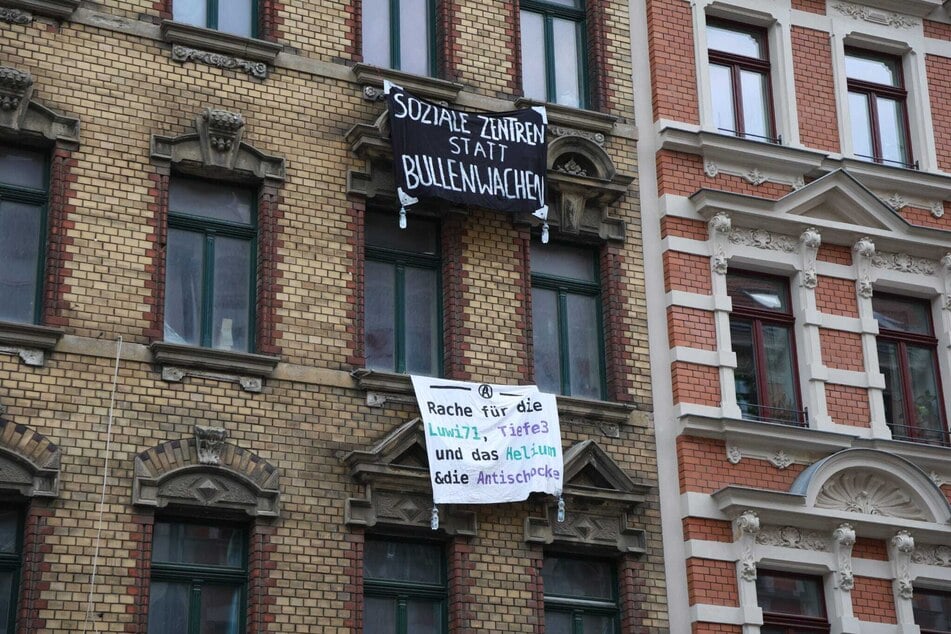 SOZIALE ZENTREN
STATT
BULLENWACHEN
Ⓐ
Rache für die
Luwi71, Tiefe3
und das Helium
&die Antischocke